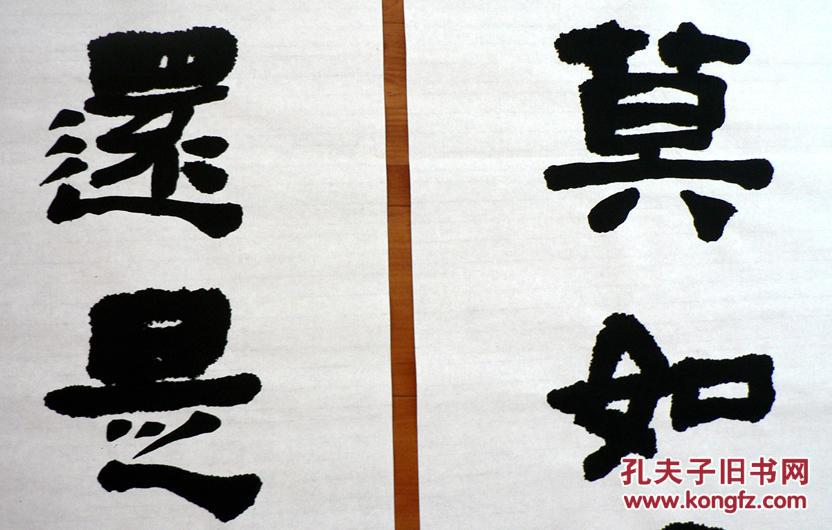 莫如
還是
孔夫子旧书网
www.kongfz.com